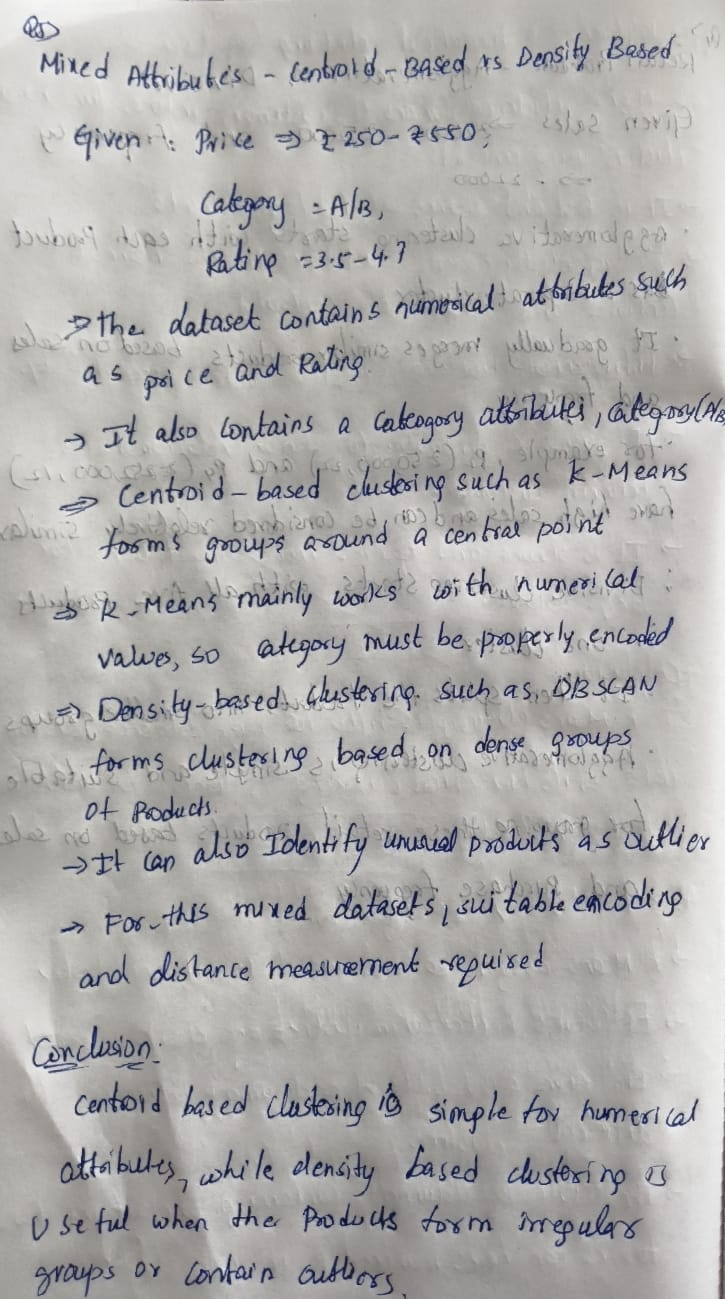 Q5)
Mixed Attributes - Centroid - Based vs Density Based
Given : Price ⇒ ₹250 - ₹550,
Category = A/B,
Rating = 3.5 - 4.7
⇒ the dataset contains numerical attributes such
as price and Rating
→ It also contains a Cateogory attributes, category (A/B
⇒ Centroid - based clustering such as k-Means
forms groups around a central point
⇒ k-Means mainly works with numerical
values, so ategory must be properly encoded
⇒ Density-based clustering. such as, DBSCAN
forms clustering based on dense groups
of Products.
→ It can also Identify unusual products as outlier
→ For this mixed datasets, suitable encoding
and distance measurement required
Conclusion:
Centroid based clustering is simple for numerical
attributes, while density based clustering is
Useful when the Products form irregular
groups or contain outliers.